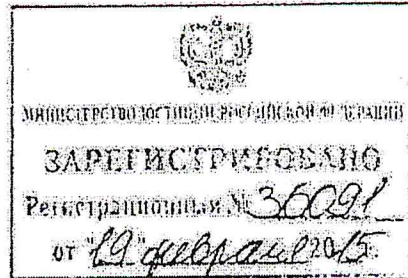 МИНИСТЕРСТВО ЮСТИЦИИ РОССИЙСКОЙ ФЕДЕРАЦИИ
ЗАРЕГИСТРИРОВАНО
Регистрационный № 36091
от "19" февраля 2015.